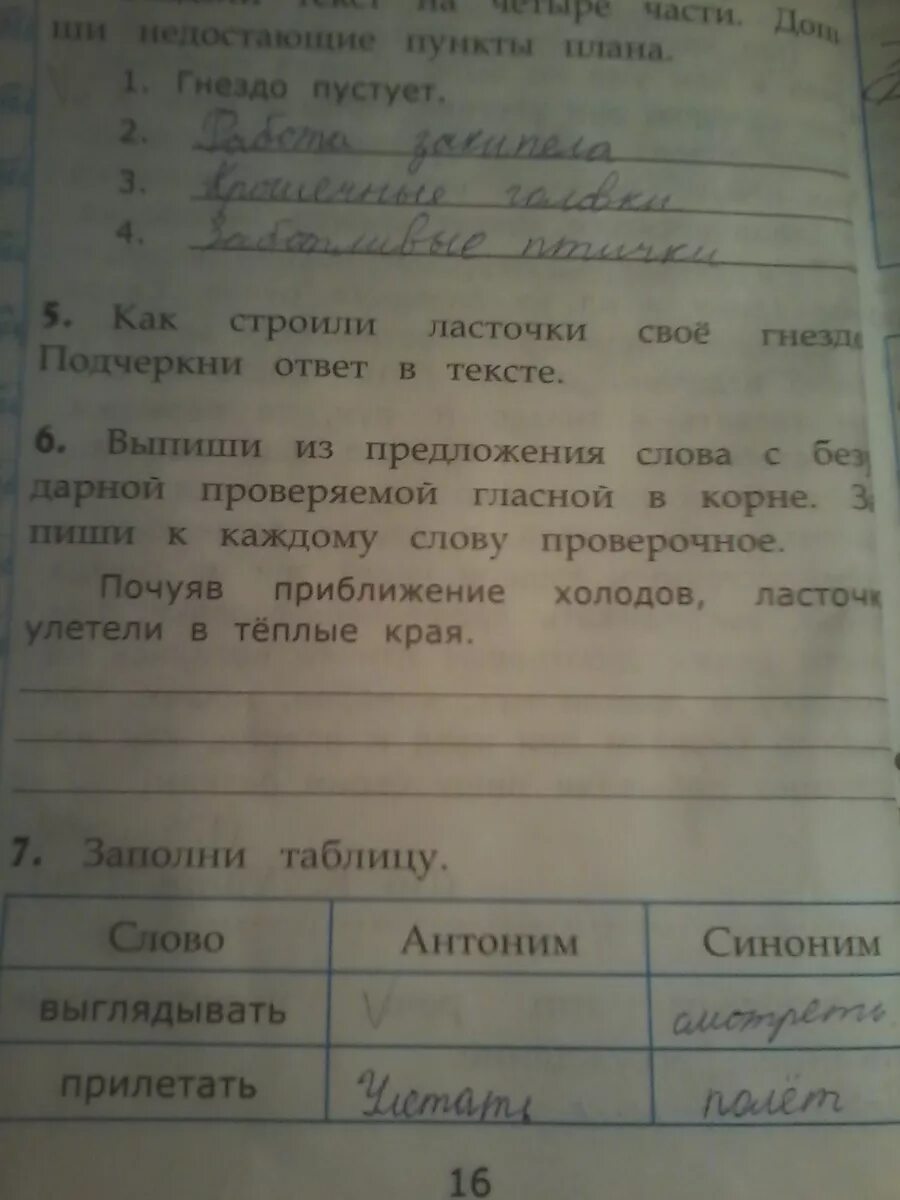 текст на четыре части. Доп
ши недостающие пункты плана.
1. Гнездо пустует.
2. Работа закипела
3. Крошечные головки
4. Заботливые птички
5. Как строили ласточки своё гнезд
Подчеркни ответ в тексте.
6. Выпиши из предложения слова с без
дарной проверяемой гласной в корне. З
пиши к каждому слову проверочное.
Почуяв приближение холодов, ласточк
улетели в тёплые края.
7. Заполни таблицу.
Слово Антоним Синоним
выглядывать V смотреть
прилетать Улетать полёт
16